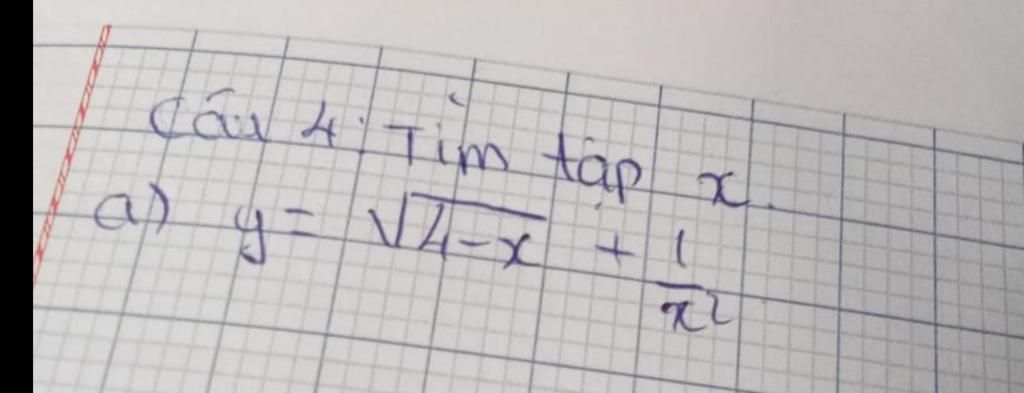 Câu 4: Tìm tập x.
a) y = √4-x + 1/x²